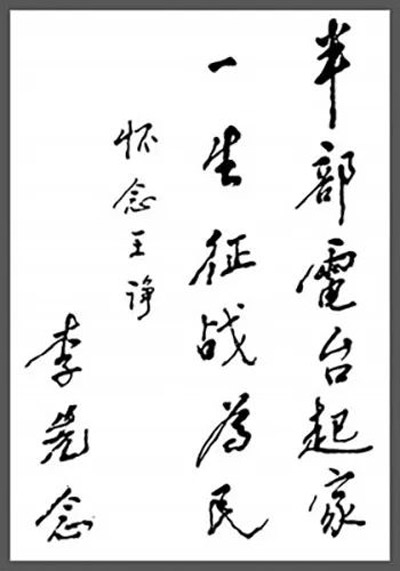 半部電台起家
一生征战为民
怀念王诤
李先念